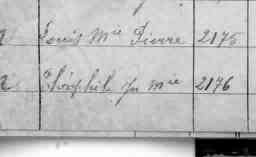 Louis Mie Pierre 2175
Théophile Jn Mie 2176